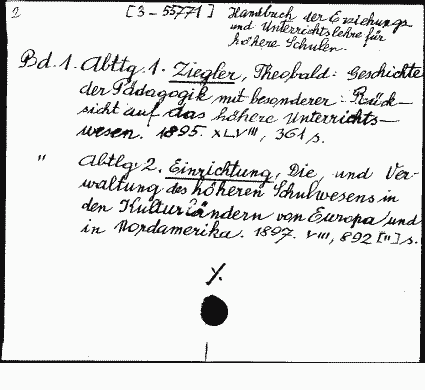 2 [3-55771] Handbuch der Erziehungs
und Unterrichtslehre für
höhere Schulen.
Bd. 1. Abttg. 1. Ziegler, Theobald: Geschichte
der Pädagogik mit besonderer Rück-
sicht auf das höhere Unterrichts-
wesen. 1895. XLVIII, 361 s.
" Abtlg. 2. Einrichtung, Die, und Ver-
waltung des höheren Schulwesens in
den Kulturländern von Europa und
in Nordamerika. 1897. VIII, 892 ["] s.